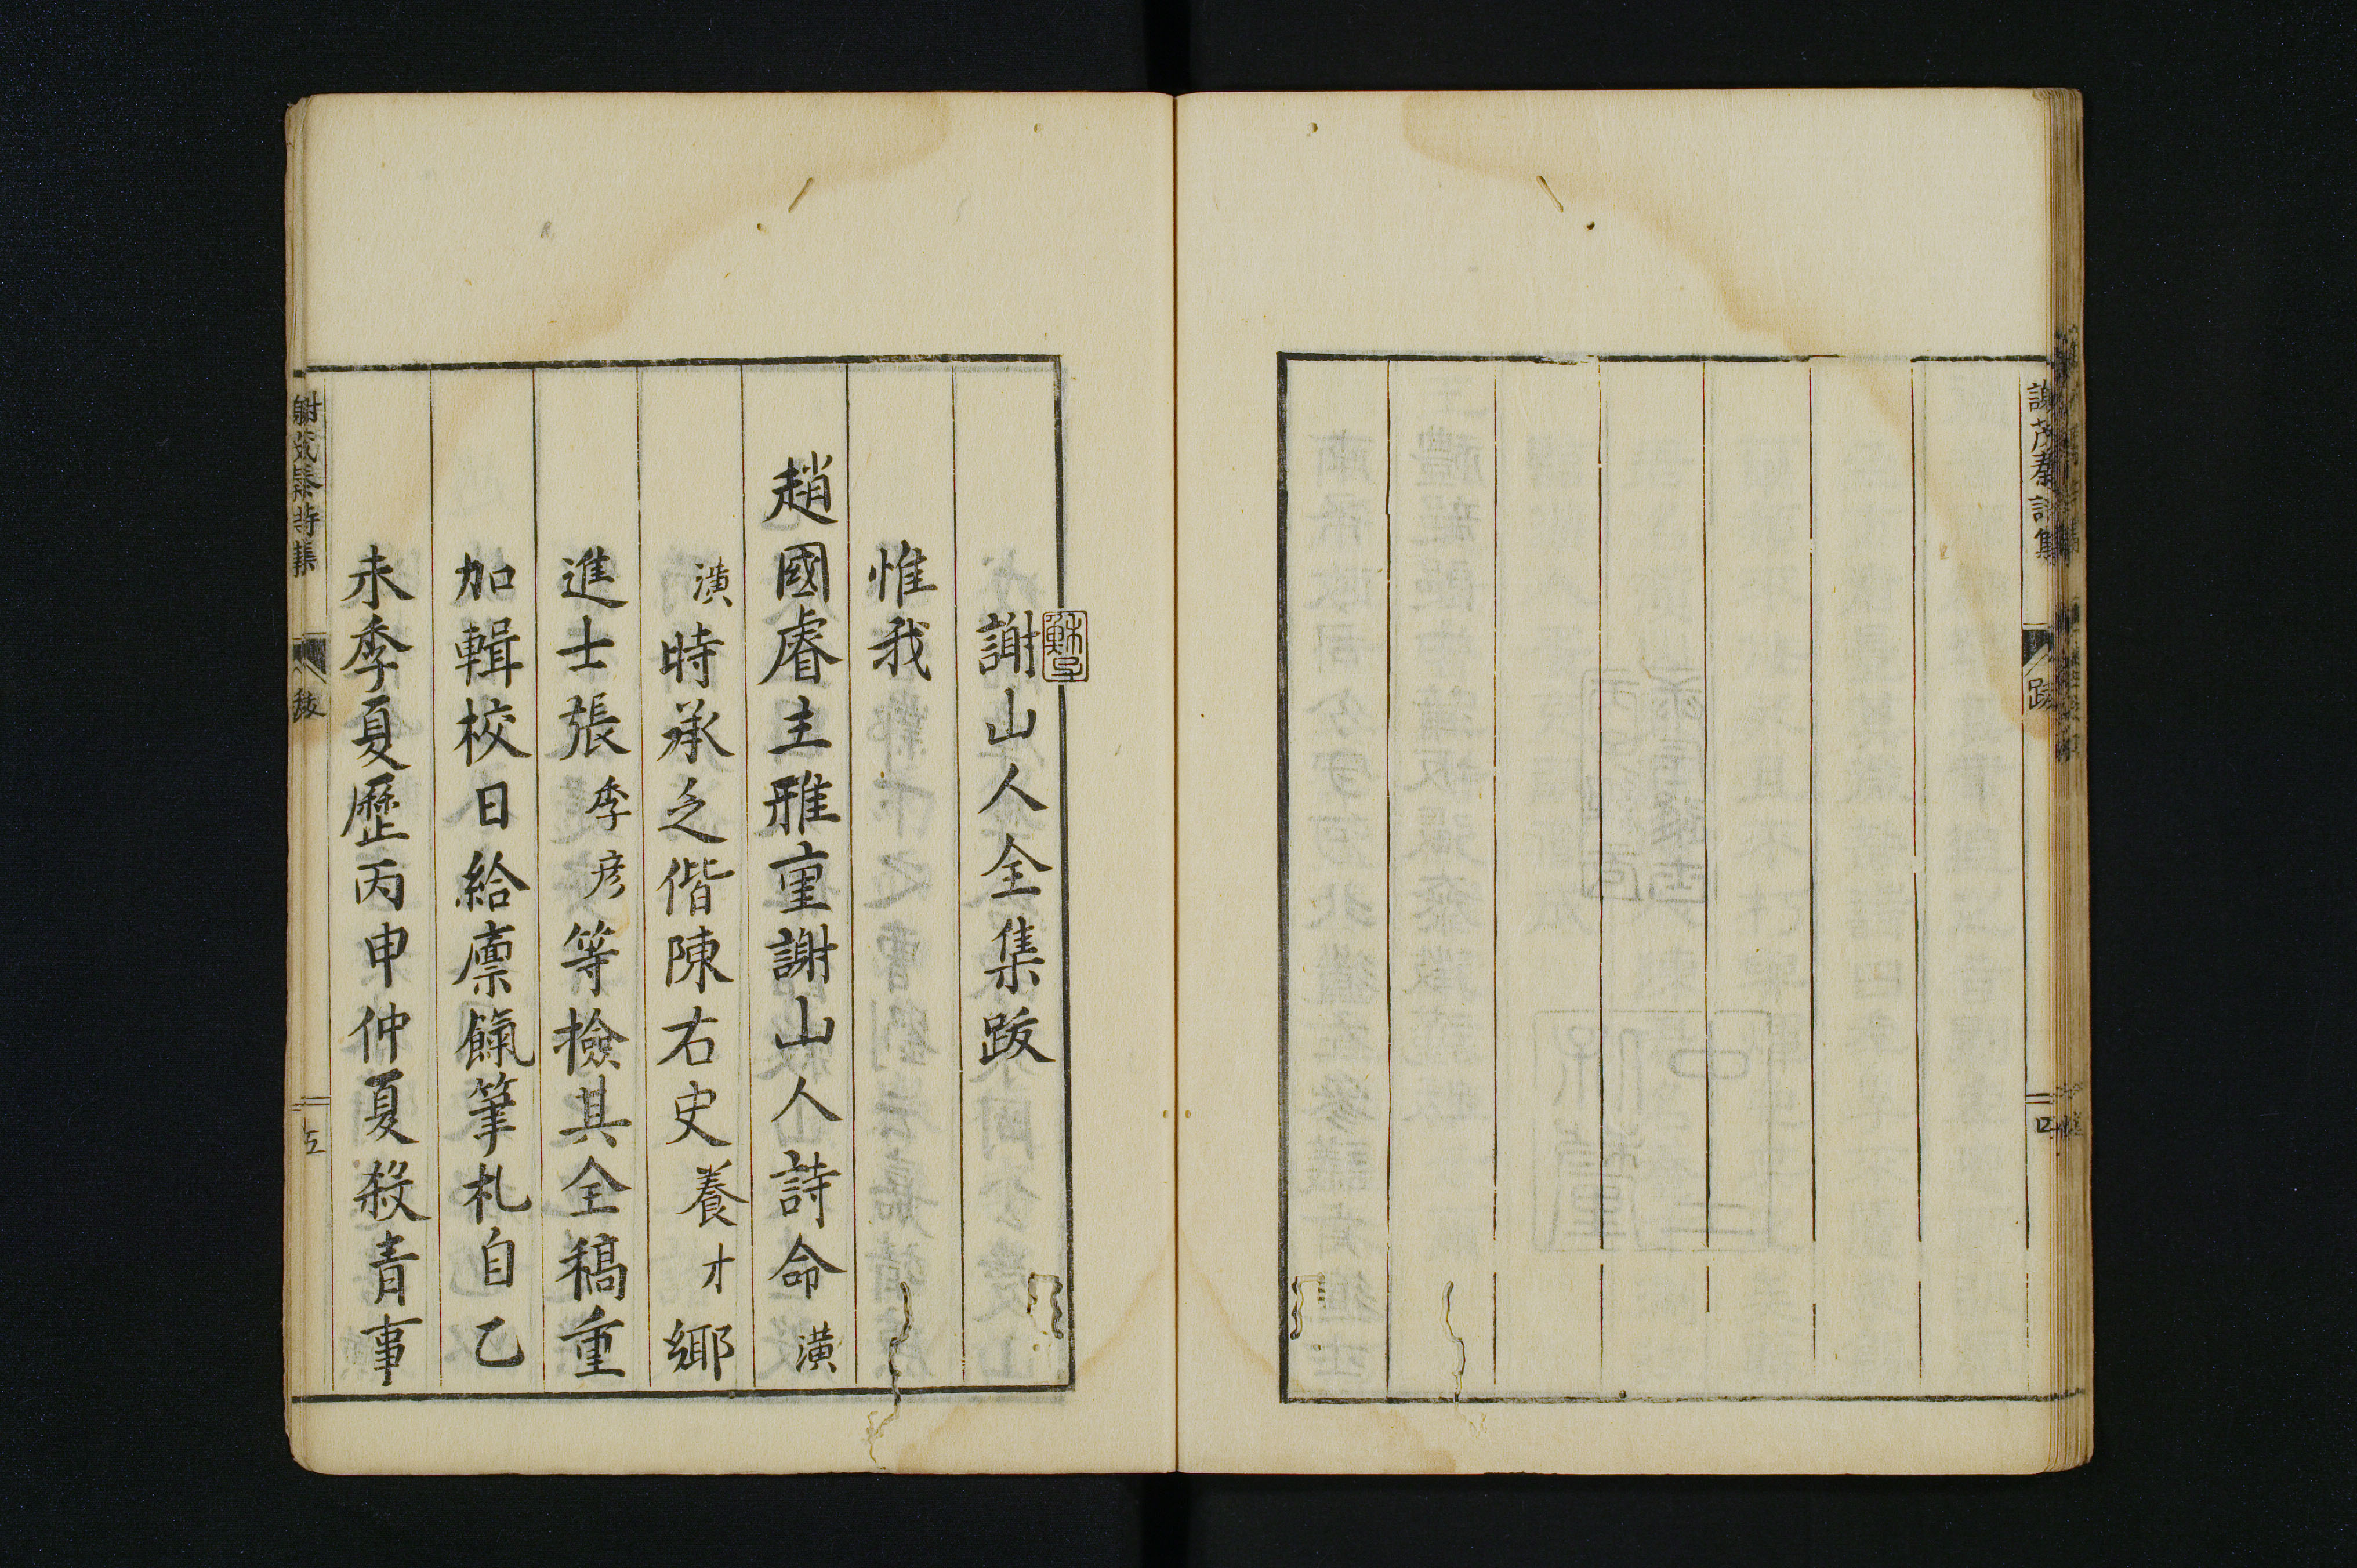 謝山人全集跋
惟我
趙國睿主雅重謝山人詩命潢
潢時承乏偕陳右史養才鄉
進士張季彦等撿其全稿重
加輯校日給廪餼筆札自乙
未季夏歷丙申仲夏殺青事
謝茂秦詩集
跋
五
謝茂秦詩集
跋
四